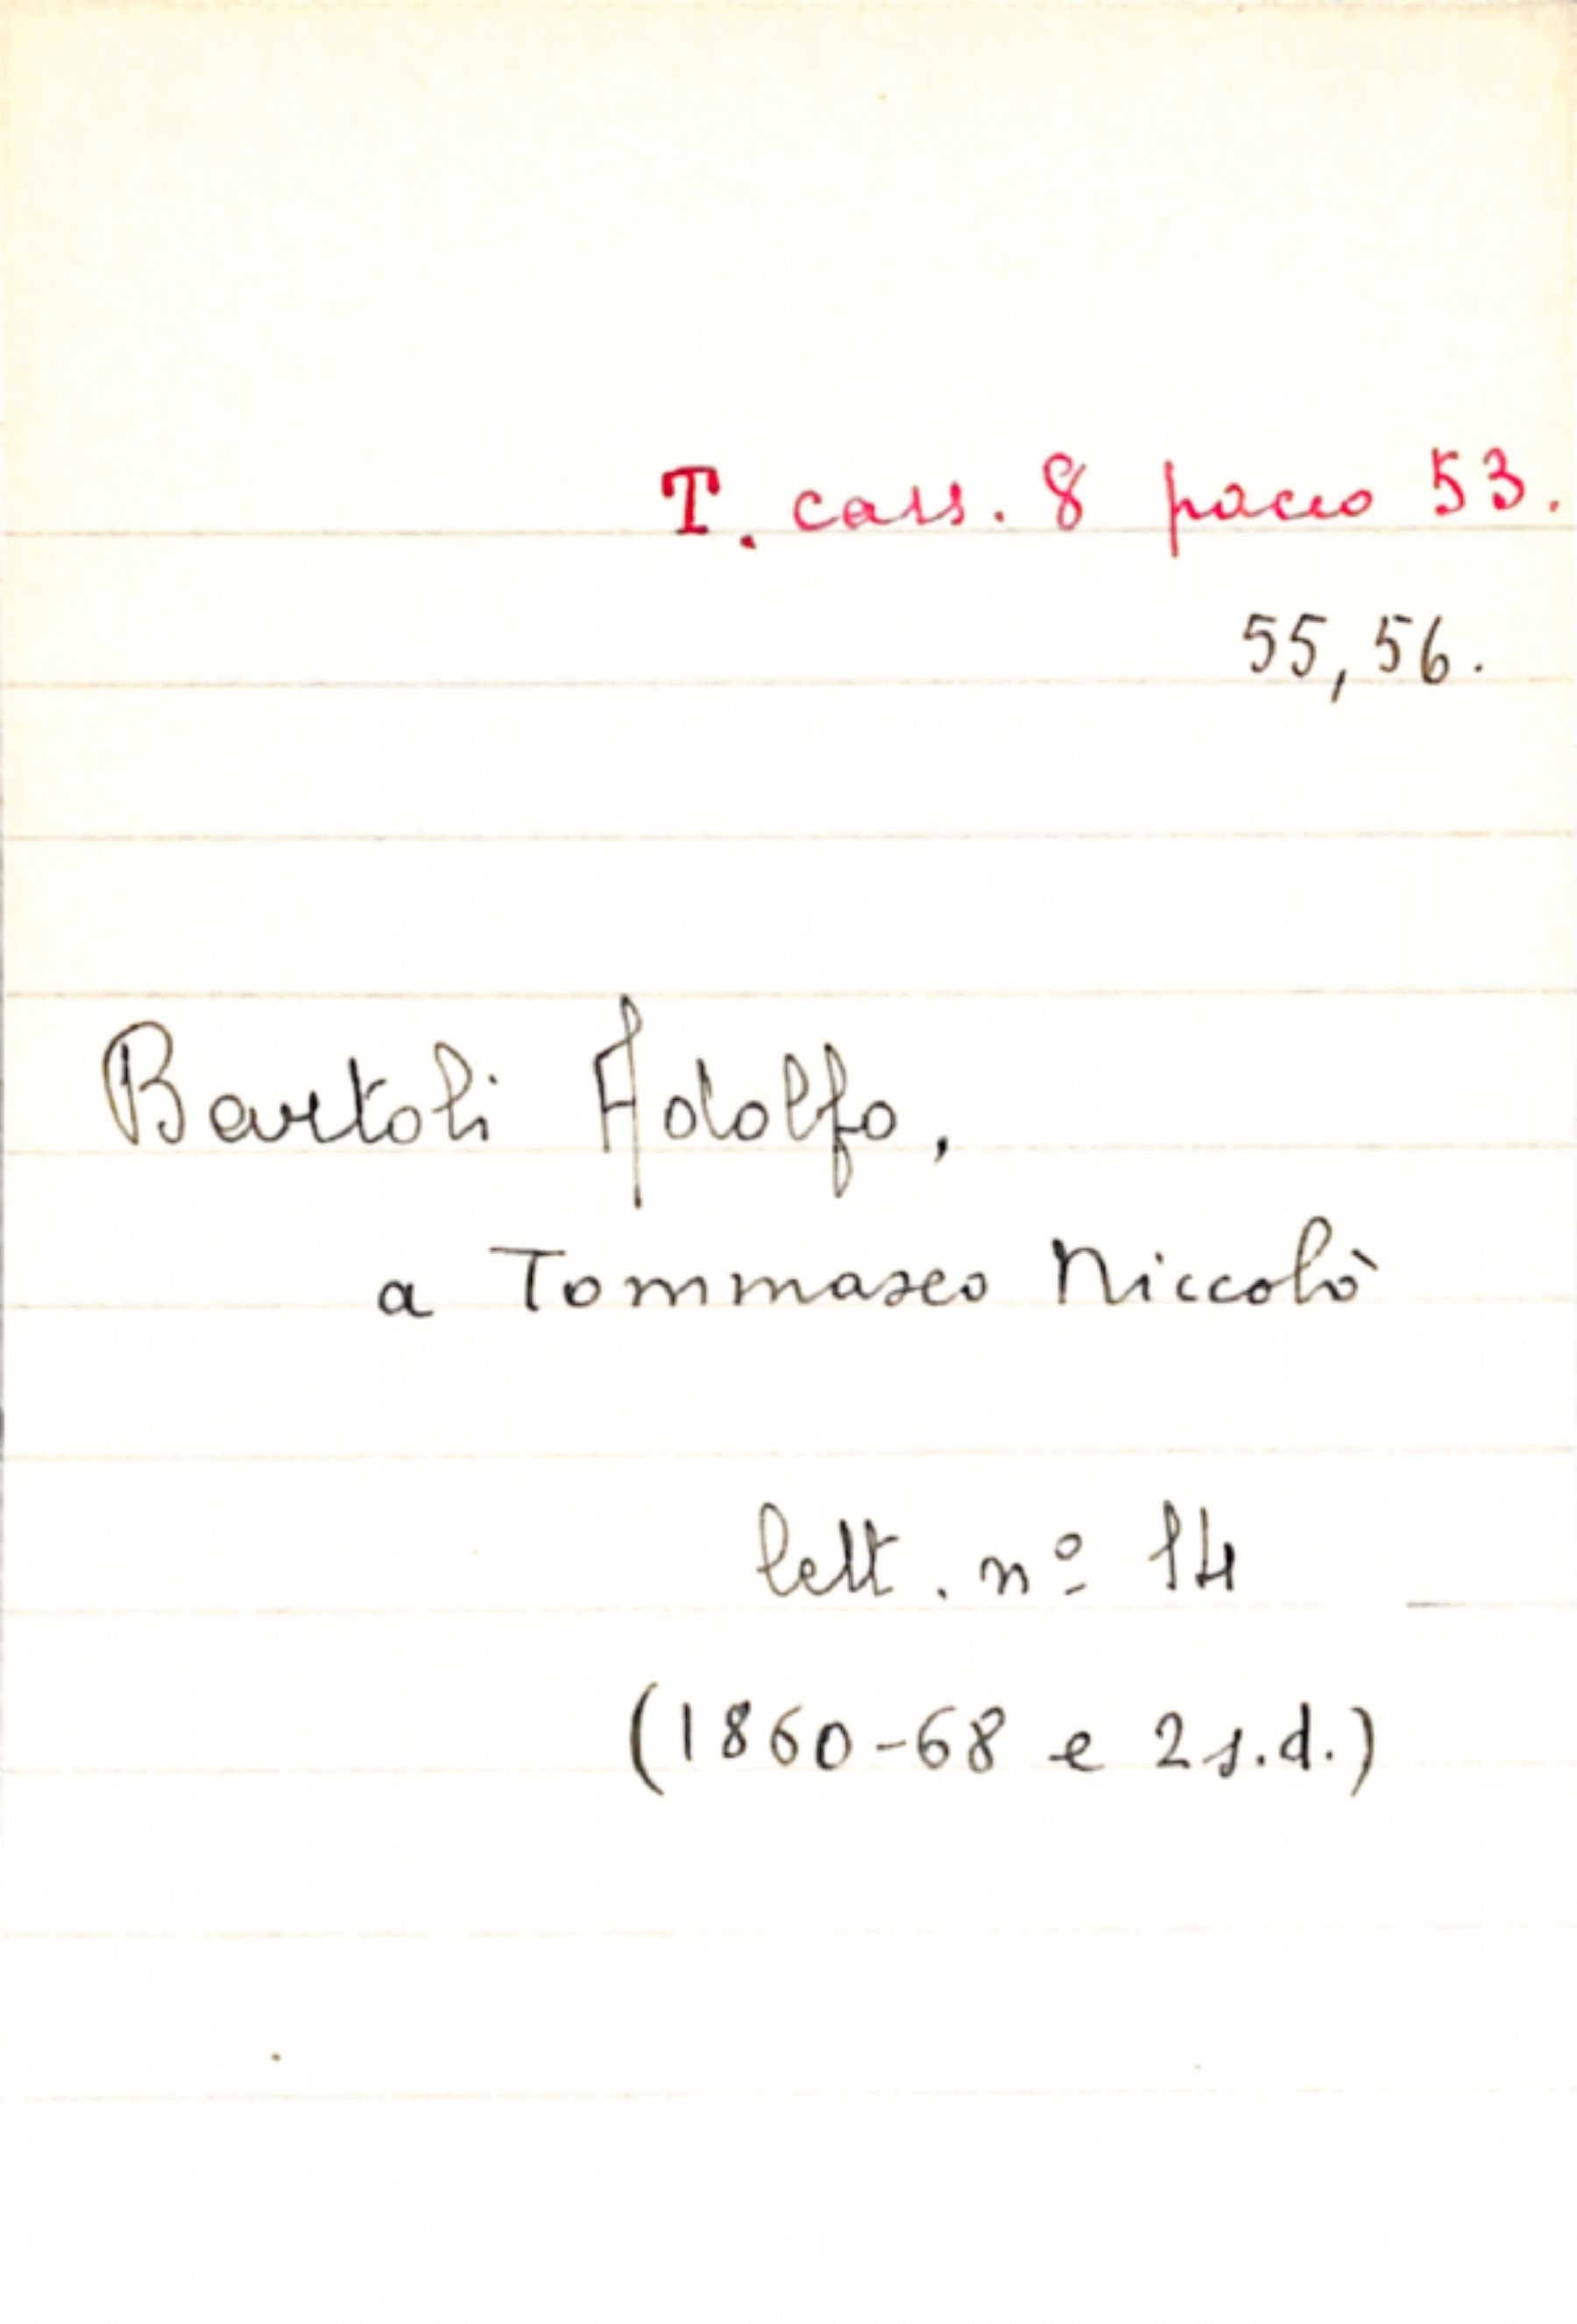 T. cass. 8 pacco 53.
55, 56.
Bartoli Adolfo,
a Tommaseo Niccolò
lett. nº 14
(1860-68 e 2 s.d.)